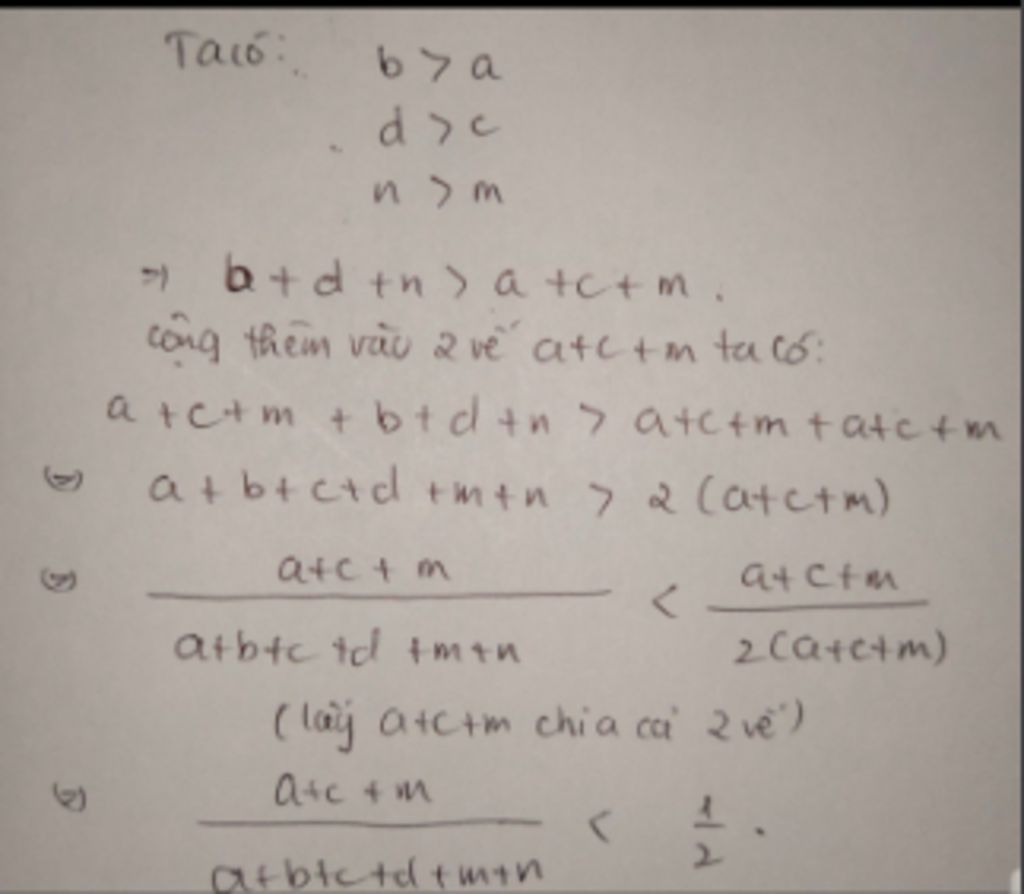 Ta có: b > a
d > c
n > m
=> b + d + n > a + c + m .
cộng thêm vào 2 vế a+c+m ta có:
a + c + m + b + d + n > a+c+m + a+c+m
<=> a + b + c + d + m + n > 2 (a+c+m)
<=> a+c+m / a+b+c+d+m+n < a+c+m / 2(a+c+m)
(lấy a+c+m chia cả 2 vế)
<=> a+c+m / a+b+c+d+m+n < 1/2 .